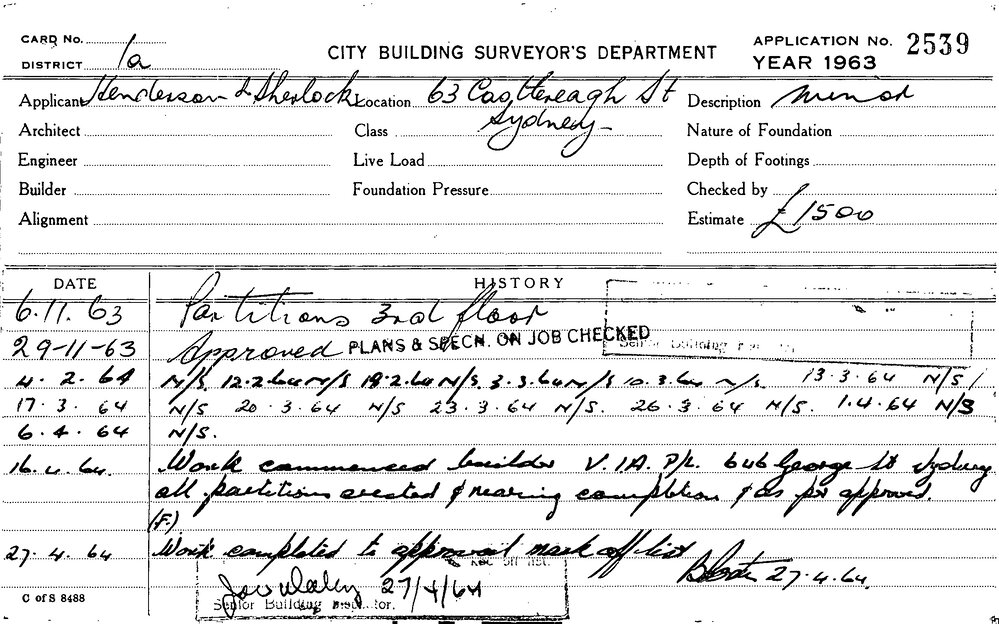 CARD No.
DISTRICT 1a
CITY BUILDING SURVEYOR'S DEPARTMENT
APPLICATION No. 2539
YEAR 1963
Applicant Henderson & Sherlock Location 63 Castlereagh St Description minor
Sydney
Architect Class Nature of Foundation
Engineer Live Load Depth of Footings
Builder Foundation Pressure Checked by
Alignment Estimate £1500
DATE HISTORY
6.11.63 Partitions 3rd floor
29-11-63 Approved PLANS & SPECN. ON JOB CHECKED
Senior Building
4.2.64 N/S. 12.2.64 N/S 18.2.64 N/S. 3.3.64 N/S 10.3.64 N/S. 13.3.64 N/S/
17.3.64 N/S 20.3.64 N/S 23.3.64 N/S. 26.3.64 N/S. 1.4.64 N/S
6.4.64 N/S.
16.4.64. Work commenced builder V.I.A. P/L. 646 George St Sydney
all partitions erected & nearing completion & as per approved.
(F.)
27.4.64 Work completed to approval mark off list
off list.
27.4.64.
27/4/64
Senior Building Inspector.
C of S 8488